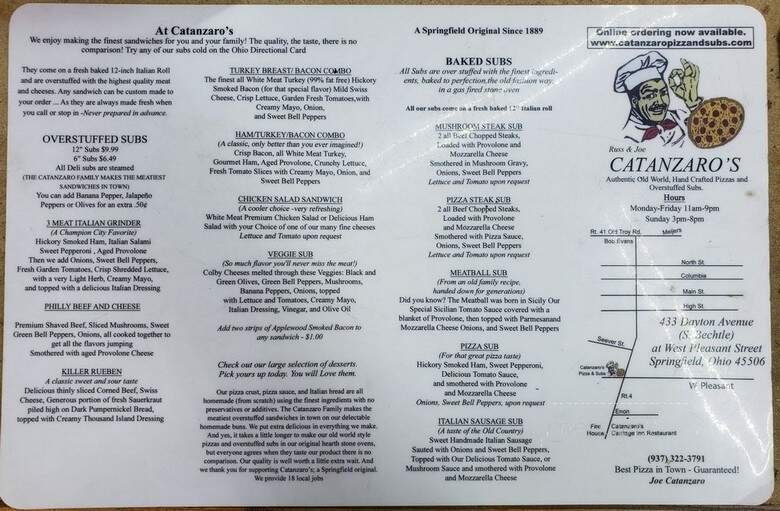 At Catanzaro's
We enjoy making the finest sandwiches for you and your family! The quality, the taste, there is no
comparison! Try any of our subs cold on the Ohio Directional Card
They come on fresh baked 12-inch Italian Roll
and are overstuffed with the highest quality meat
and cheeses. Any sandwich can be made custom to
your order ... As they are always made fresh when
you call or stop in -Never prepared in advance.
OVERSTUFFED SUBS
12" Subs $9.99
6" Subs $6.49
All Deli subs are steamed
(THE CATANZARO FAMILY MAKES THE MEATIEST
SANDWICHES IN TOWN)
You can add Banana Pepper, Jalapeño
Peppers or Olives for an extra .50¢
3 MEAT ITALIAN GRINDER
(A Champion City Favorite)
Hickory Smoked Ham, Italian Salami
Sweet Pepperoni , Aged Provolone
Then we add Onions, Sweet Bell Peppers,
Fresh Garden Tomatoes, Crisp Shredded Lettuce,
with a very Light Herb, Creamy Mayo,
and topped with a delicious Italian Dressing
PHILLY BEEF AND CHEESE
Premium Shaved Beef, Sliced Mushrooms, Sweet
Green Bell Peppers, Onions, all cooked together to
get all the flavors jumping
Smothered with aged Provolone Cheese
KILLER RUEBEN
A classic sweet and sour taste
Delicious thinly sliced Corned Beef, Swiss
Cheese, Generous portion of fresh Sauerkraut
piled high on Dark Pumpernickel Bread,
topped with Creamy Thousand Island Dressing
TURKEY BREAST/ BACON COMBO
The finest all White Meat Turkey (99% fat free) Hickory
Smoked Bacon (for that special flavor) Mild Swiss
Cheese, Crisp Lettuce, Garden Fresh Tomatoes,with
Creamy Mayo, Onion,
and Sweet Bell Peppers
HAM/TURKEY/BACON COMBO
(A classic, only better than you ever imagined!)
Crisp Bacon, all White Meat Turkey,
Gourmet Ham, Aged Provolone, Crunchy Lettuce,
Fresh Tomato Slices with Creamy Mayo, Onion, and
Sweet Bell Peppers
CHICKEN SALAD SANDWICH
(A cooler choice -very refreshing)
White Meat Premium Chicken Salad or Delicious Ham
Salad with your Choice of one of our many fine cheeses
Lettuce and Tomato upon request
VEGGIE SUB
(So much flavor you'll never miss the meat!)
Colby Cheeses melted through these Veggies: Black and
Green Olives, Green Bell Peppers, Mushrooms,
Banana Peppers, Onions, topped
with Lettuce and Tomatoes, Creamy Mayo,
Italian Dressing, Vinegar, and Olive Oil
Add two strips of Applewood Smoked Bacon to
any sandwich - $1.00
Check out our large selection of desserts.
Pick yours up today. You will Love them.
Our pizza crust, pizza sauce, and Italian bread are all
homemade (from scratch) using the finest ingredients with no
preservatives or additives. The Catanzaro Family makes the
meatiest overstuffed sandwiches in town on our delectable
homemade buns. We put extra delicious in everything we make.
And yes, it takes a little longer to make our old world style
pizzas and overstuffed subs in our original hearth stone ovens,
but everyone agrees when they taste our product there is no
comparison. Our quality is well worth a little extra wait. And
we thank you for supporting Catanzaro's; a Springfield original.
We provide 18 local jobs
A Springfield Original Since 1889
BAKED SUBS
All Subs are over stuffed with the finest ingredi-
ents, baked to perfection, the old fashion way,
in a gas fired stone oven
All our subs come on a fresh baked 12" Italian roll
MUSHROOM STEAK SUB
2 all Beef Chopped Steaks,
Loaded with Provolone and
Mozzarella Cheese
Smothered in Mushroom Gravy,
Onions, Sweet Bell Peppers
Lettuce and Tomato upon request
PIZZA STEAK SUB
2 all Beef Chopped Steaks,
Loaded with Provolone
and Mozzarella Cheese
Smothered with Pizza Sauce,
Onions, Sweet Bell Peppers
Lettuce and Tomato upon request
MEATBALL SUB
(From an old family recipe,
handed down for generations)
Did you know? The Meatball was born in Sicily Our
Special Sicilian Tomato Sauce covered with a
blanket of Provolone, then topped with Parmesanand
Mozzarella Cheese Onions, and Sweet Bell Peppers
PIZZA SUB
(For that great pizza taste)
Hickory Smoked Ham, Sweet Pepperoni,
Delicious Tomato Sauce,
and smothered with Provolone
and Mozzarella Cheese
Onions, Sweet Bell Peppers, upon request
ITALIAN SAUSAGE SUB
(A taste of the Old Country)
Sweet Handmade Italian Sausage
Sauted with Onions and Sweet Bell Peppers,
Topped with Our Delicious Tomato Sauce, or
Mushroom Sauce and smothered with Provolone
and Mozzarella Cheese
Online ordering now available.
www.catanzaropizzandsubs.com
Russ & Joe
CATANZARO'S
Authentic Old World, Hand Crafted Pizzas and
Overstuffed Subs.
Hours
Monday-Friday 11am-9pm
Sunday 3pm-8pm
Rt. 41 Old Troy Rd.
Meijers
Bob Evans
North St.
Columbia
Main St.
High St.
433 Dayton Avenue
(S. Bechtle)
at West Pleasant Street
Springfield, Ohio 45506
Seever St.
Catanzaro's
Pizza & Subs
W Pleasant
Rt.4
Enon
Fire
House
Catanzaro's
Carriage Inn Restaurant
(937) 322-3791
Best Pizza in Town - Guaranteed!
Joe Catanzaro